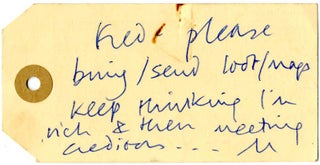 Fred please
bring/send loot/
keep thinking I'm
rich & then meeting
creditors . . . M